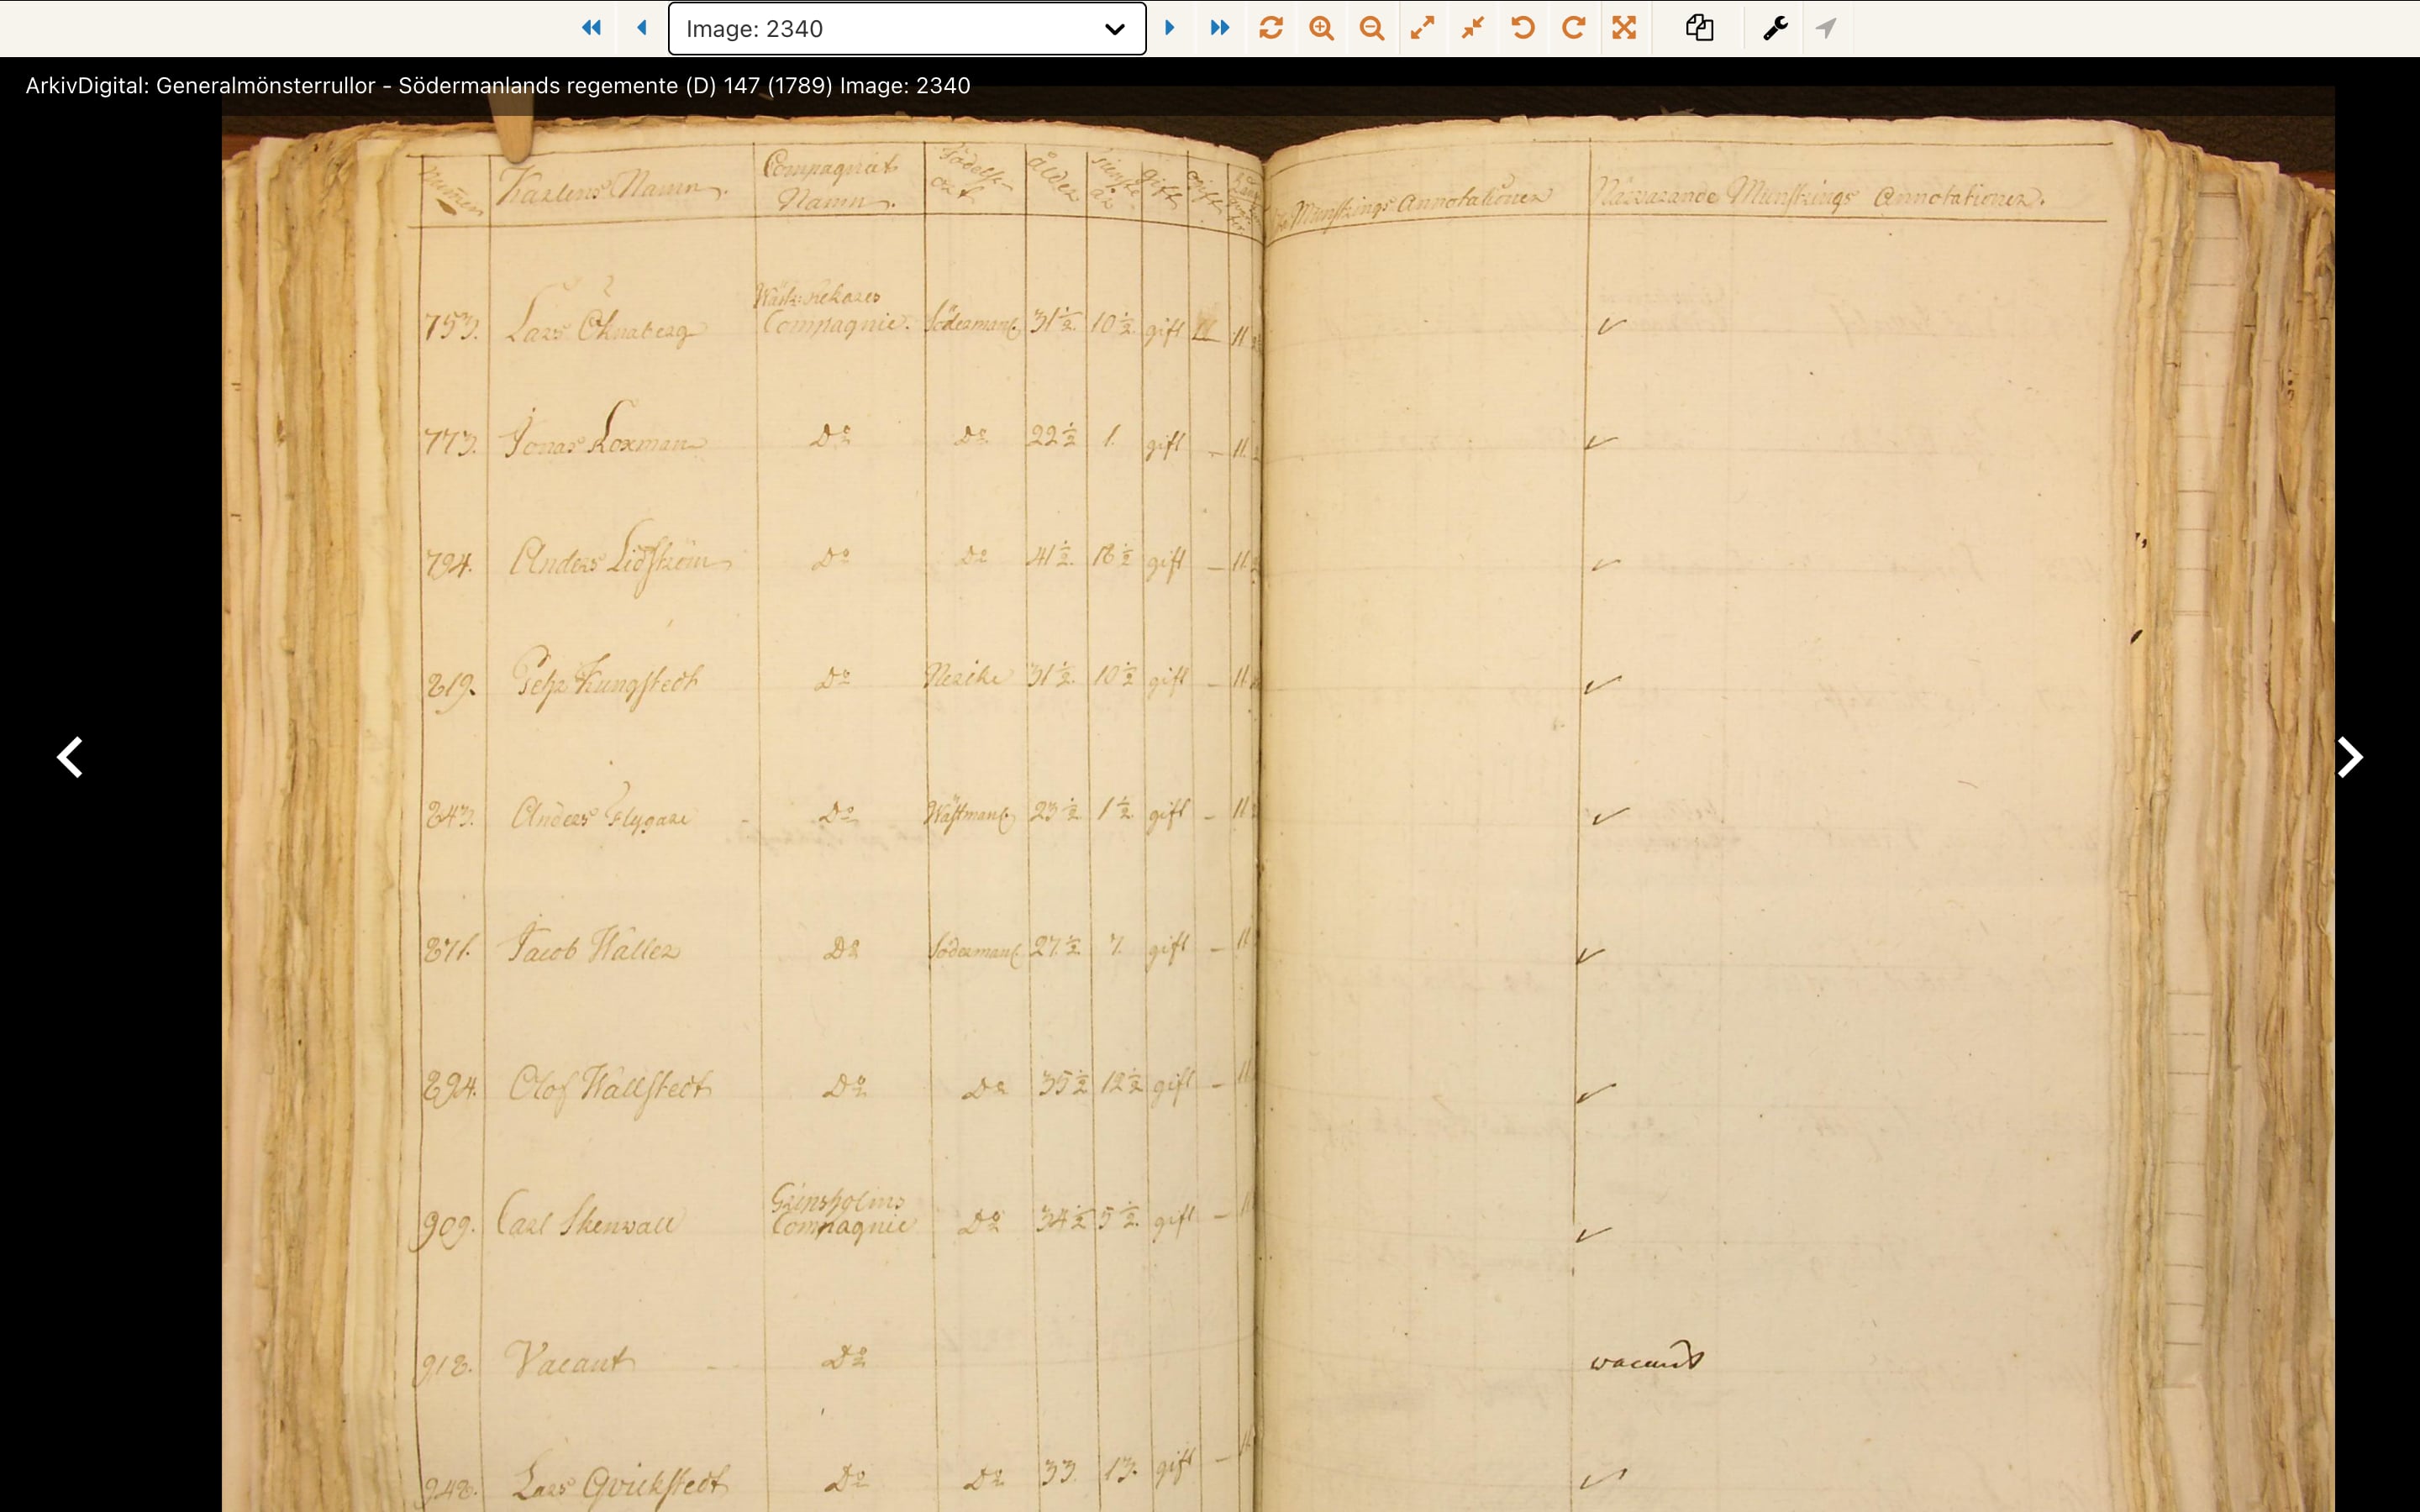 Image: 2340
ArkivDigital: Generalmönsterrullor - Södermanlands regemente (D) 147 (1789) Image: 2340
Numer Karlens Namn. Compagniets Namn. Födelse ort ålder tienste år gift ogift
Mönstrings Annotationer Närvarande Mönstrings Annotationer.
753. Lars Öknaberg Compagnie. Söderманl. 31½ 10½ gift
773. Jonas Loxman Do Do 22½ 1. gift -
794. Anders Lidström Do Do 41½ 18½ gift -
819. Pehr Kungstedt Do Nerike 31½ 10½ gift -
843. Anders Flygare Do Wästmanl. 23½ 1½ gift -
871. Jacob Wäller Do Södermanl. 27½ 7. gift -
894. Olof Wallstedt Do Do 35½ 12½ gift -
909. Carl Skenwall Gripsholms Compagnie Do 34½ 5½ gift -
918. Vacant Do wacant
948. Lars Qvickstedt Do Do 33. 13. gift -